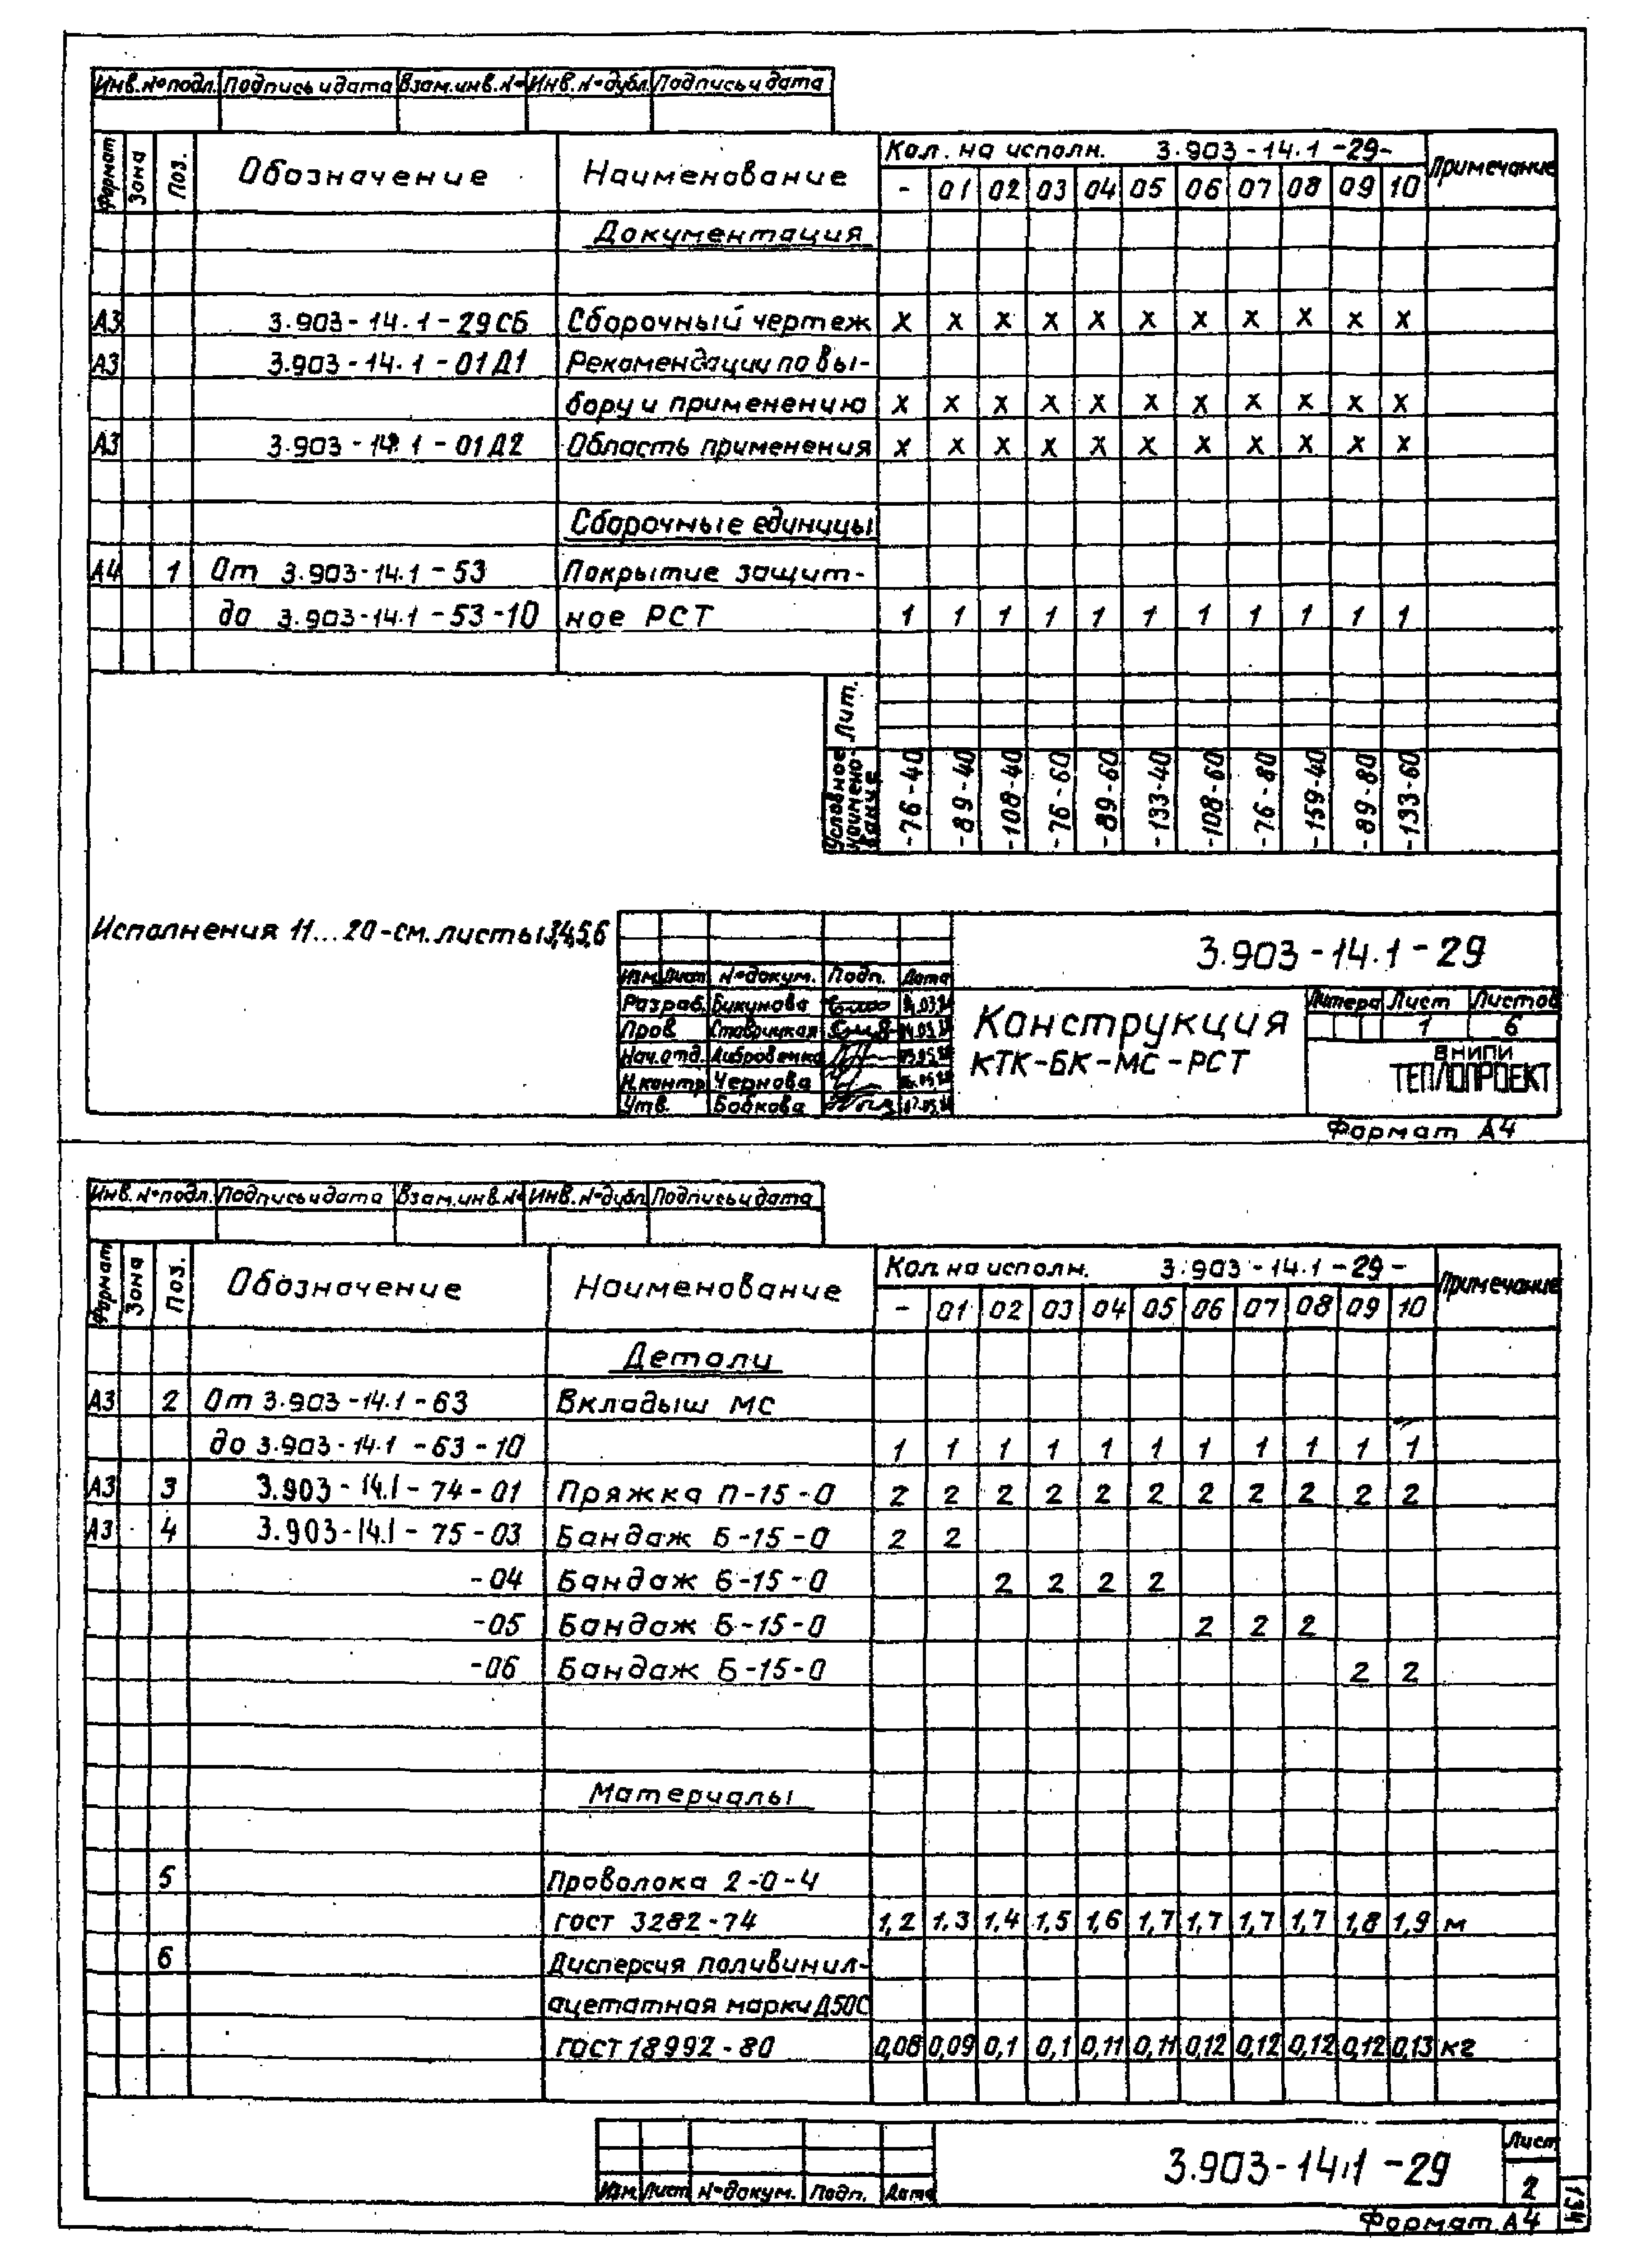 Инв.№подл. Подпись и дата Взам.инв.№ Инв.№дубл. Подпись и дата
Формат Зона Поз. Обозначение Наименование Кол. на исполн. 3.903-14.1-29- Примечание
- 01 02 03 04 05 06 07 08 09 10
Документация
А3 3.903-14.1-29СБ Сборочный чертеж X X X X X X X X X X X
А3 3.903-14.1-01Д1 Рекомендации по вы-
бору и применению X X X X X X X X X X X
А3 3.903-14.1-01Д2 Область применения X X X X X X X X X X X
Сборочные единицы
А4 1 От 3.903-14.1-53 Покрытие защит-
до 3.903-14.1-53-10 ное РСТ 1 1 1 1 1 1 1 1 1 1 1
Лит.
Условное наимено-вание -76-40 -89-40 -108-40 -76-60 -89-60 -133-40 -108-60 -76-80 -159-40 -89-80 -133-60
Исполнения 11...20-см.листы 3,4,5,6
3.903-14.1-29
Изм. Лист №докум. Подп. Дата
Разраб. Бикунова
Пров. Ставрицкая
Нач.отд.
Н.контр. Чернова
Утв. Бобкова
Конструкция
КТК-БК-МС-РСТ
Литера Лист Листов
1 6
ВНИПИ
ТЕПЛОПРОЕКТ
Формат А4
Инв.№подл. Подпись и дата Взам.инв.№ Инв.№дубл. Подпись и дата
Формат Зона Поз. Обозначение Наименование Кол. на исполн. 3.903-14.1-29- Примечание
- 01 02 03 04 05 06 07 08 09 10
Детали
А3 2 От 3.903-14.1-63 Вкладыш МС
до 3.903-14.1-63-10 1 1 1 1 1 1 1 1 1 1 1
А3 3 3.903-14.1-74-01 Пряжка П-15-0 2 2 2 2 2 2 2 2 2 2 2
А3 4 3.903-14.1-75-03 Бандаж Б-15-0 2 2
-04 Бандаж Б-15-0 2 2 2 2
-05 Бандаж Б-15-0 2 2 2
-06 Бандаж Б-15-0 2 2
Материалы
5 Проволока 2-0-Ч
ГОСТ 3282-74 1,2 1,3 1,4 1,5 1,6 1,7 1,7 1,7 1,7 1,8 1,9 м
6 Дисперсия поливинил-
ацетатная марки Д50С
ГОСТ 18992-80 0,08 0,09 0,1 0,1 0,11 0,11 0,12 0,12 0,12 0,12 0,13 кг
Изм. Лист №докум. Подп. Дата
3.903-14.1-29
Лист
2
Формат А4
134